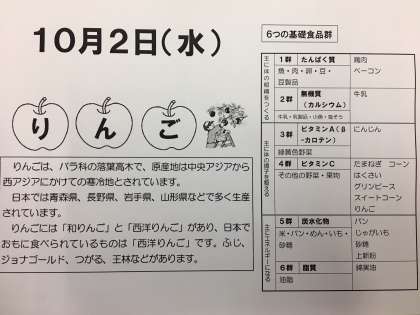 10月2日(水)
りんご
りんごは、バラ科の落葉高木で、原産地は中央アジアから
西アジアにかけての寒冷地とされています。
日本では青森県、長野県、岩手県、山形県などで多く生産
されています。
りんごには「和りんご」と「西洋りんご」があり、日本で
おもに食べられているものは「西洋りんご」です。ふじ、
ジョナゴールド、つがる、王林などがあります。
6つの基礎食品群
主に体の組織をつくる
1群 たんぱく質
魚・肉・卵・豆・
豆製品
鶏肉
ベーコン
2群 無機質
(カルシウム)
牛乳・乳製品・小魚・海そう
牛乳
主に体の調子を整える
3群 ビタミンA(β-
カロテン)
緑黄色野菜
にんじん
4群 ビタミンC
その他の野菜・果物
たまねぎ コーン
はくさい
グリンピース
スイートコーン
りんご
主にエネルギーになる
5群 炭水化物
米・パン・めん・いも・
砂糖
パン
じゃがいも
砂糖
上新粉
6群 脂質
油脂
綿実油